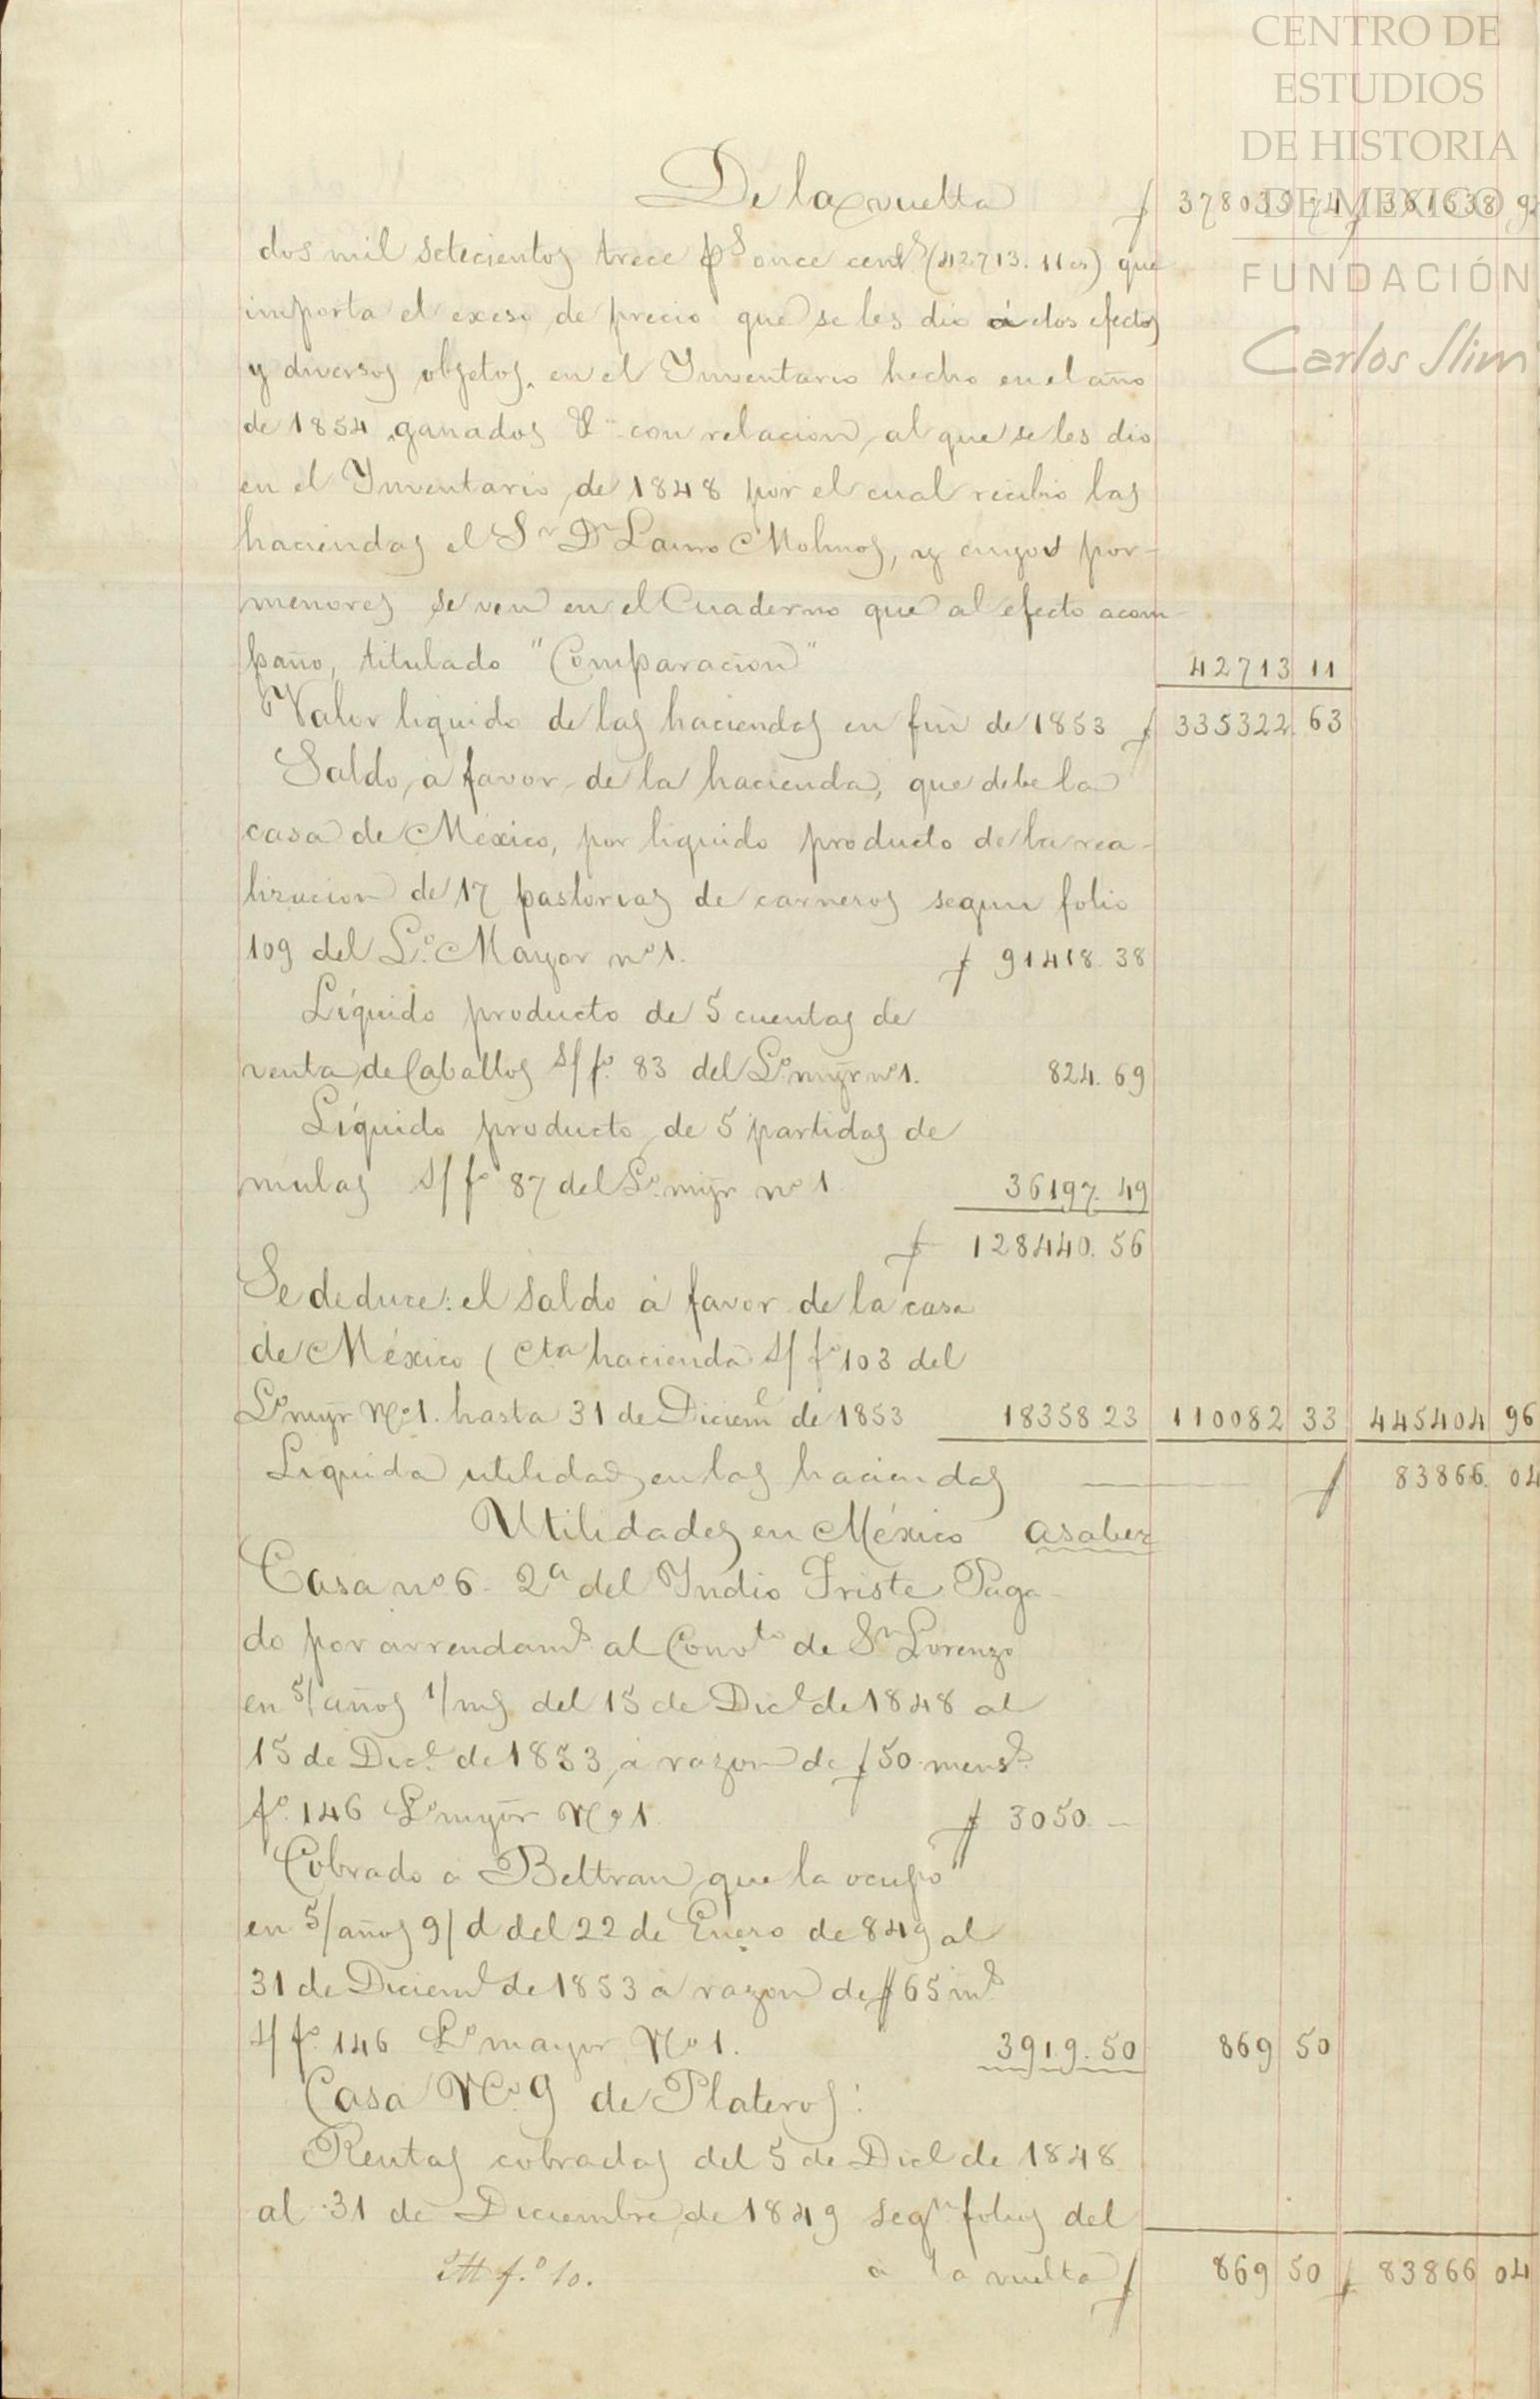 CENTRO DE
ESTUDIOS
DE HISTORIA
DE MEXICO
FUNDACIÓN
Carlos Slim
De la vuelta $ 378035 74 $ 361638 92
dos mil setecientos trece ps once cents (42713. 11 cs) que
importa el exeso de precio que se les dió á los efectos
y diversos objetos, en el Ynventario hecho en el año
de 1854, ganados &a con relacion al que se les dio
en el Ynventario de 1848 por el cual recibio las
haciendas el Sr Dn Lauro Molinos, y cuyos por-
menores se ven en el Cuaderno que al efecto acom-
paño, titulado "Comparacion" 42713 11
Valor liquido de las haciendas en fin de 1853 $ 335322. 63
Saldo a favor de la hacienda, que debe la
casa de México, por liquido producto de la rea-
lizacion de 17 pastorias de carneros segun folio
109 del Lo. Mayor no 1. $ 91418. 38
Líquido producto de 5 cuentas de
venta de Caballos s/ fo. 83 del Lo myr no 1. 824. 69
Líquido producto de 5 partidas de
mulas s/ fo 87 del Lo. myr no 1 36197. 49
$ 128440. 56
Se deduce: el saldo á favor de la casa
de México (Cta hacienda s/ fo 103 del
Lo myr No 1. hasta 31 de Diciem e de 1853 18358 23 110082 33 445404 96
Liquida utilidad en las haciendas $ 83866. 04
Utilidades en México asaber
Casa no 6. 2a del Yndio Triste. Paga-
do por arrendams. al Convto de Sn Lorenzo
en 5/ años 1/ ms del 15 de Dice de 1848 al
15 de Dice. de 1853, á razon de $ 50 menss.
fo. 146 Lo myor No 1. $ 3050. —
Cobrado a Beltran que la ocupó
en 5/ años 9/ d del 22 de Enero de 849 al
31 de Dicieme de 1853 á razon de $ 65 ms
s/ fo. 146 Lo mayor No 1. 3919. 50 869 50
Casa No. 9 de Plateros:
Rentas cobradas del 5 de Dice de 1848
al 31 de Diciembre de 1849 segn folios del
fo. 10. a la vuelta $ 869 50 $ 83866 04